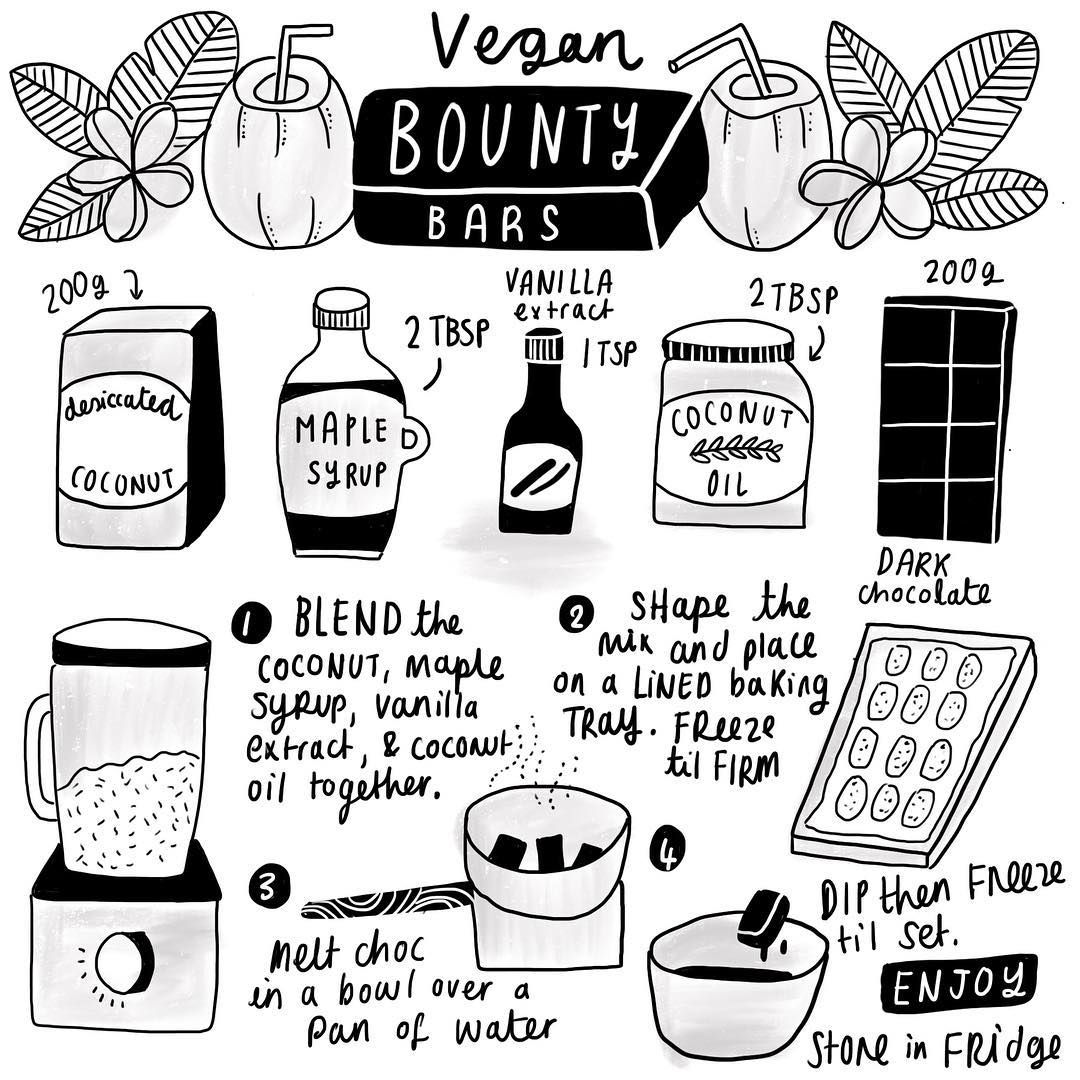 Vegan
BOUNTY
BARS
200g
desiccated
COCONUT
MAPLE
SYRUP
2 TBSP
VANILLA
extract
1 TSP
2 TBSP
COCONUT
OIL
200g
DARK
chocolate
1 BLEND the
COCONUT, maple
SYRUP, vanilla
extract, & coconut
oil together.
2 SHape the
mix and place
on a LINED baking
TRay. FReeze
til FIRM
3
melt choc
in a bowl over a
pan of water
4
DIP then FReeze
til set.
ENJOY
STORe in FRidge